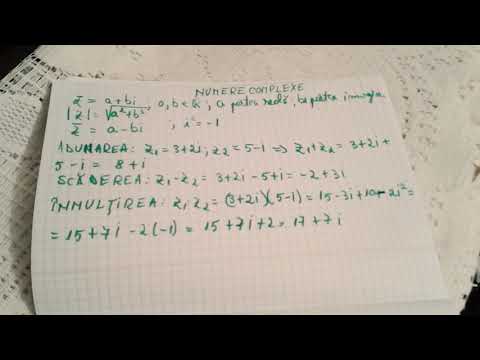 NUMERE COMPLEXE
z = a+bi, a,b ∈ R; a partea reală, b partea imag.
|z| = √a²+b²
z̄ = a-bi ; i² = -1
ADUNAREA: z₁ = 3+2i; z₂ = 5-i ⇒ z₁+z₂ = 3+2i+
5-i = 8+i
SCĂDEREA: z₁-z₂ = 3+2i-5+i = -2+3i
ÎNMULȚIREA: z₁z₂ = (3+2i)(5-i) = 15-3i+10i-2i² =
= 15+7i-2(-1) = 15+7i+2 = 17+7i